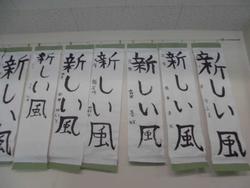 新しい風
新しい風
新しい風
新しい風
新しい風
新しい風
新しい風